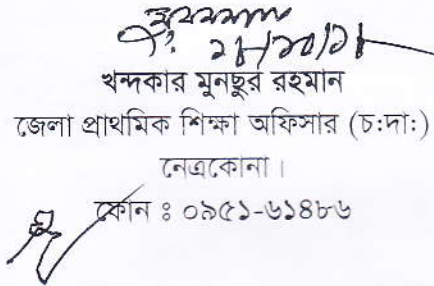 খন্দকার মুনছুর রহমান
জেলা প্রাথমিক শিক্ষা অফিসার (চ:দা:)
নেত্রকোনা।
ফোন ঃ ০৯৫১-৬১৪৮৬